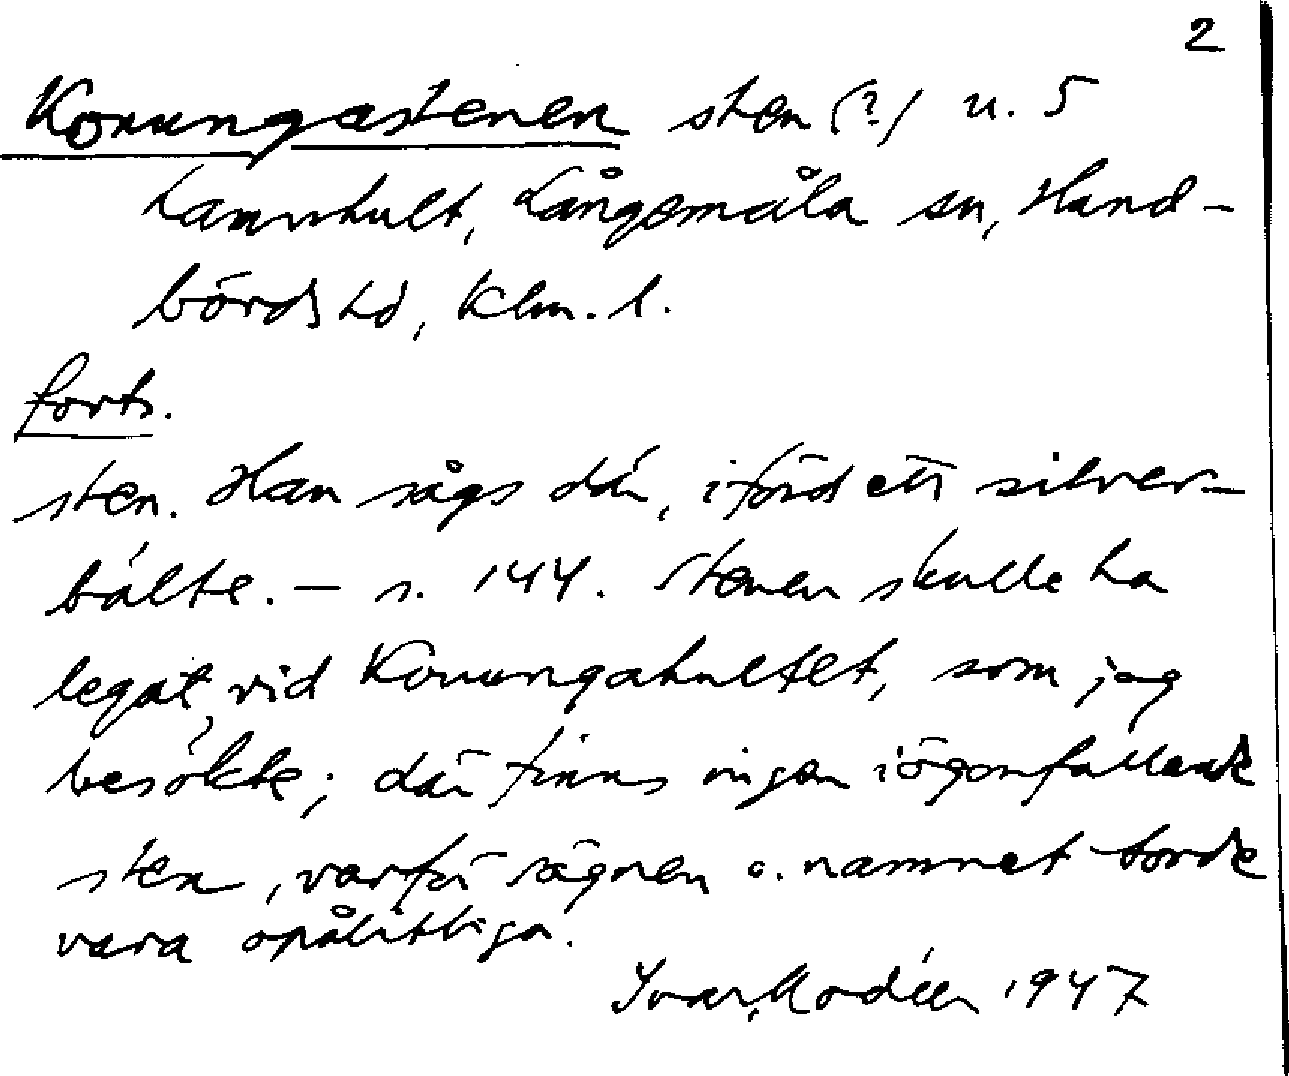 2
Konungastenen sten (?) u. 5
Lammhult, Långemåla sn, Hand-
börds hd, Klm. l.
forts.
sten. Han sågs där, iförd ett silver-
bälte. – s. 144. Stenen skulle ha
legat, vid Konungahultet, som jag
besökte; där finns ingen iögonfallande
sten, varför sägnen o. namnet torde
vara opålitliga.
Ivar Modéer 1947